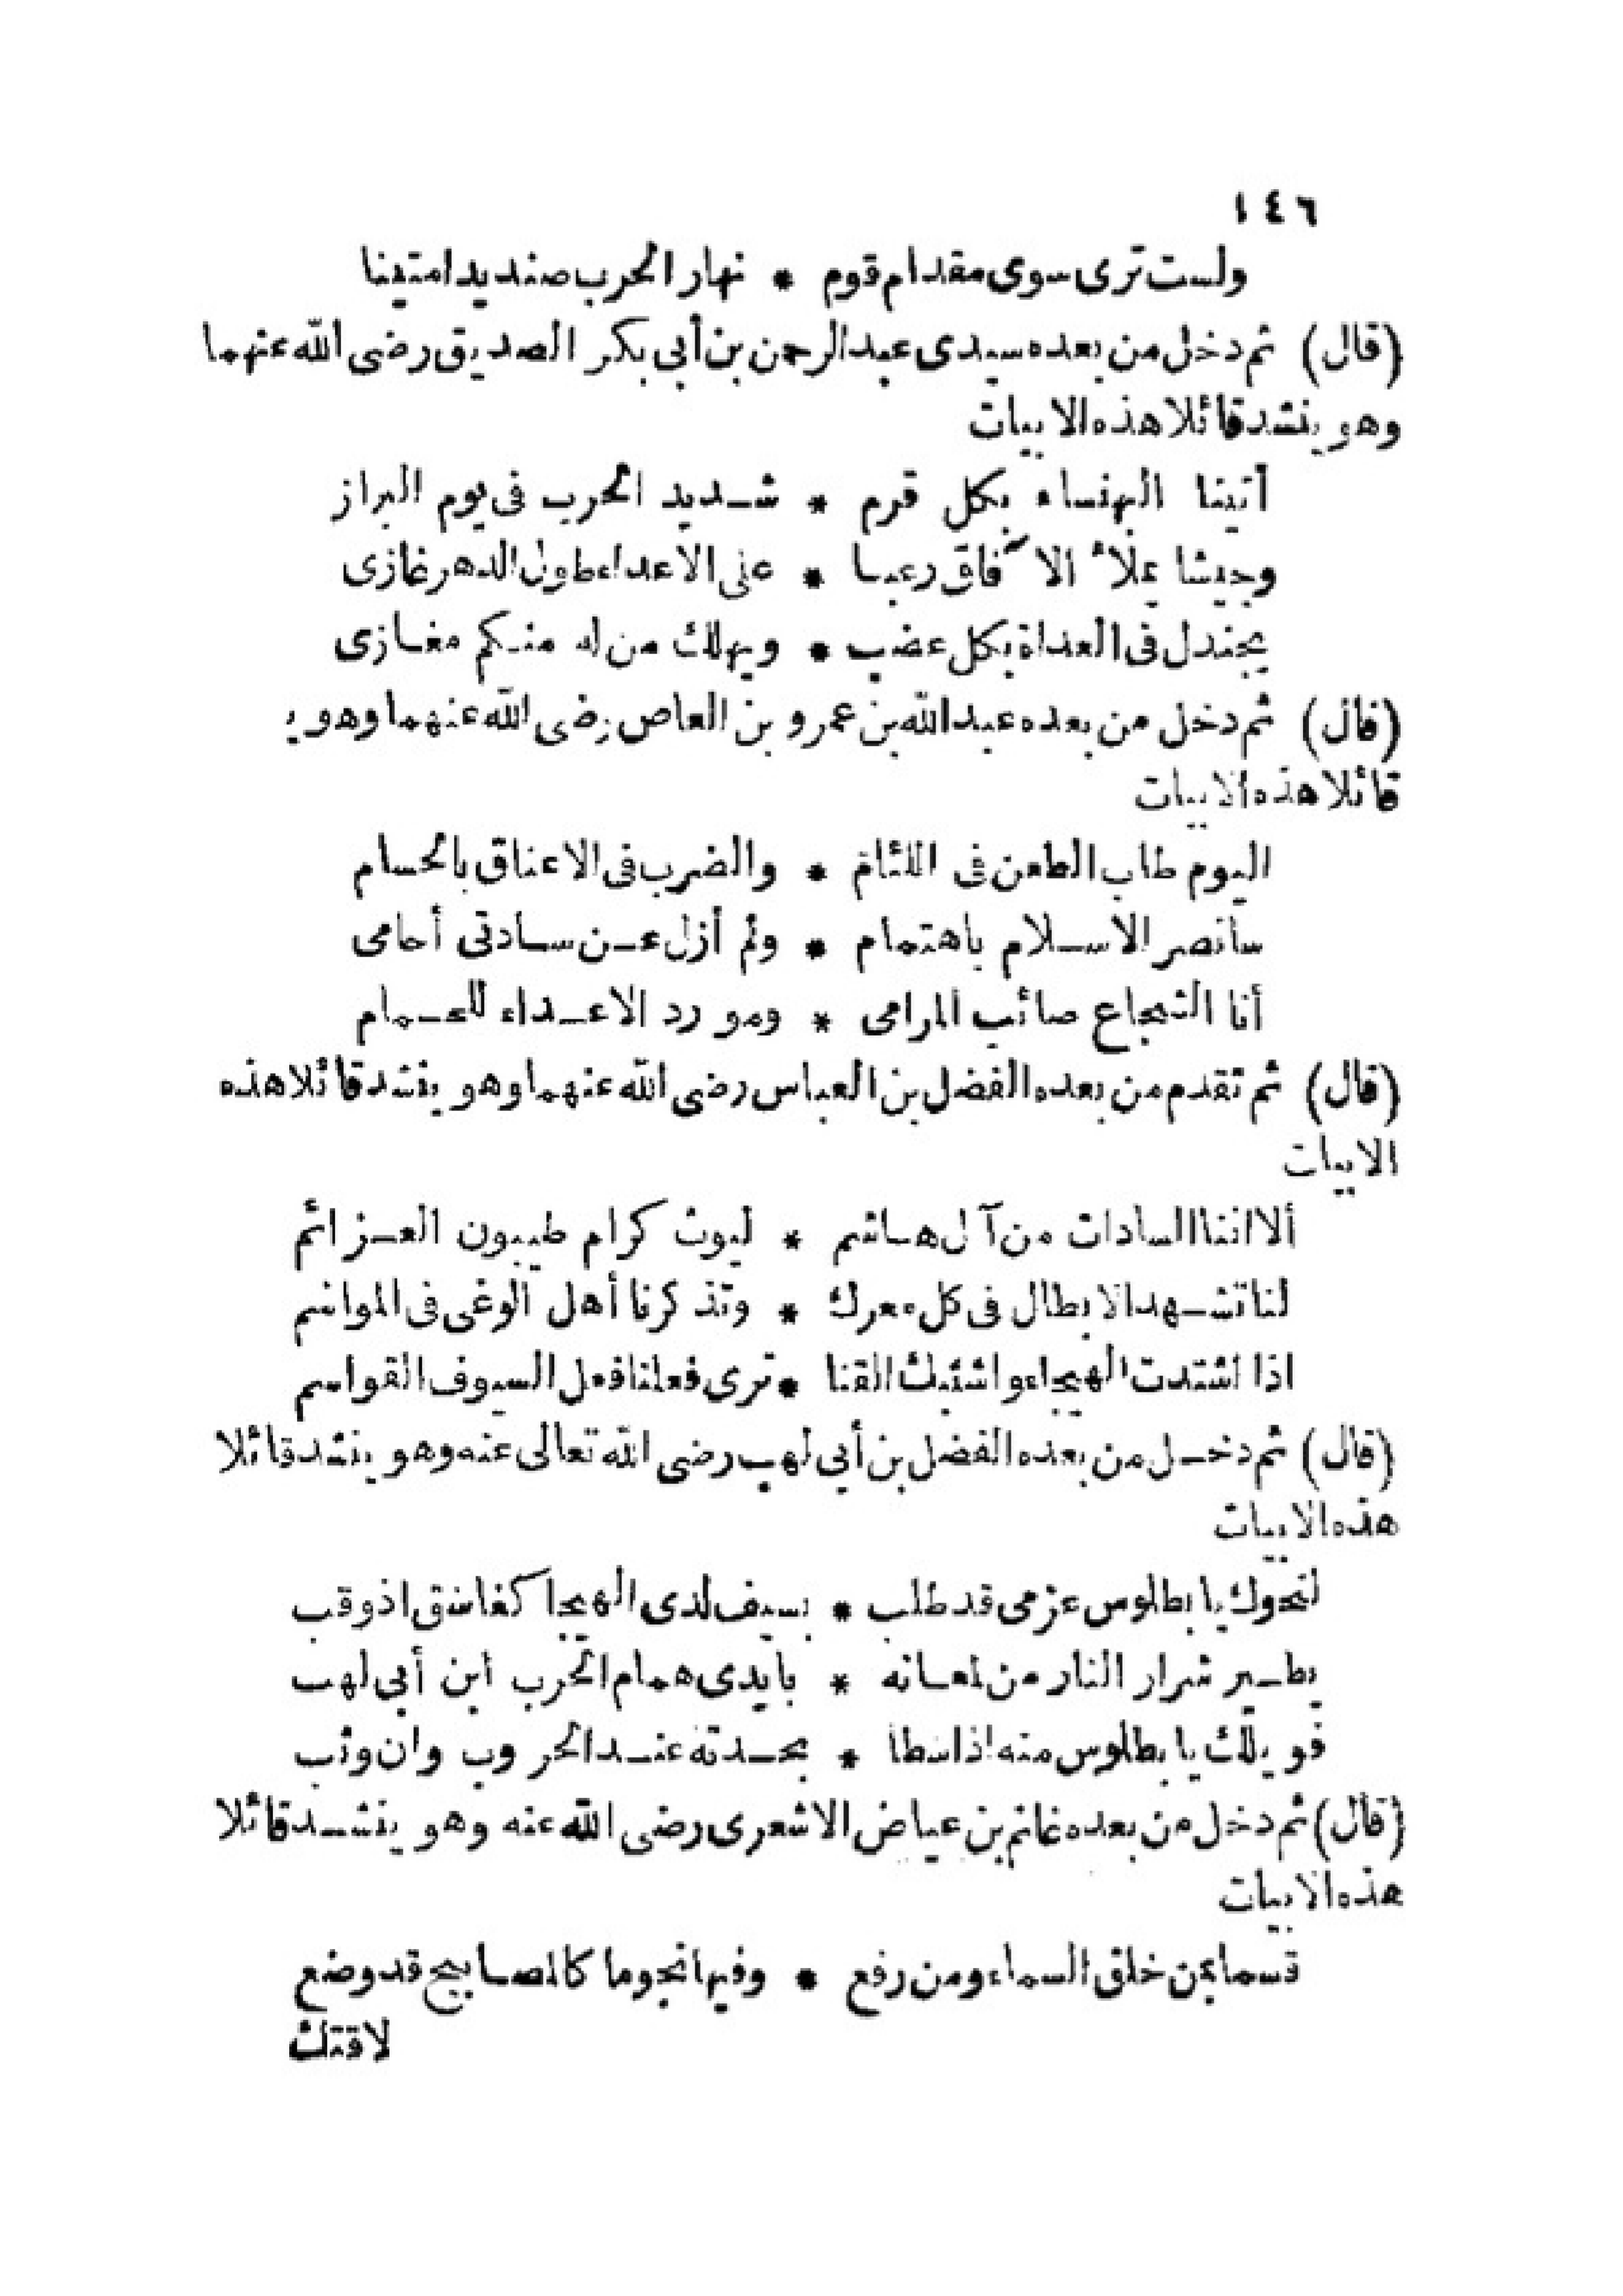 ١٤٦
ولست ترى سوى مقدام قوم * نهار الحرب صنديدا متينا
(قال) ثم دخل من بعده سيدى عبد الرحمن بن أبى بكر الصديق رضى الله عنهما
وهو ينشد قائلا هذه الابيات
أتينا البهنساء بكل قرم * شديد الحرب فى يوم البراز
وجيشا يملأ الآفاق رعبا * على الاعداء طول الدهر غازى
يجندل فى العداة بكل عضب * ويهلك من له منكم مغازى
(قال) ثم دخل من بعده عبد الله بن عمرو بن العاص رضى الله عنهما وهو ي
قائلا هذه الابيات
اليوم طاب الطعن فى اللئام * والضرب فى الاعناق بالحسام
سأنصر الاسلام باهتمام * ولم أزل عن سادتى أحامى
أنا الشجاع صائب المرامى * ومورد الاعداء للحمام
(قال) ثم تقدم من بعده الفضل بن العباس رضى الله عنهما وهو ينشد قائلا هذه
الابيات
ألا اننا السادات من آل هاشم * ليوث كرام طيبون العزائم
لنا تشهد الابطال فى كل معرك * وتذكرنا أهل الوغى فى المواسم
اذا اشتدت الهيجاء واشتبك القنا * ترى فعلنا فعل السيوف القواسم
(قال) ثم دخل من بعده الفضل بن أبى لهب رضى الله تعالى عنه وهو ينشد قائلا
هذه الابيات
لنحوك يا بطلوس عزمى قد طلب * بسيف لدى الهيجا كغاسق اذ وقب
يطير شرار النار من لمعانه * بايدى همام الحرب ابن أبى لهب
فويلك يا بطلوس منه اذا سطا * بحدته عند الحروب وان وثب
(قال) ثم دخل من بعده غانم بن عياض الاشعرى رضى الله عنه وهو ينشد قائلا
هذه الابيات
قسما بمن خلق السماء ومن رفع * وفيها نجوما كالمصابيح قد وضع
لاقتك